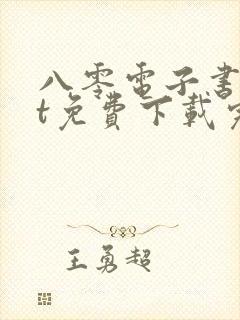 八零電子書
t免費下載完
王勇超